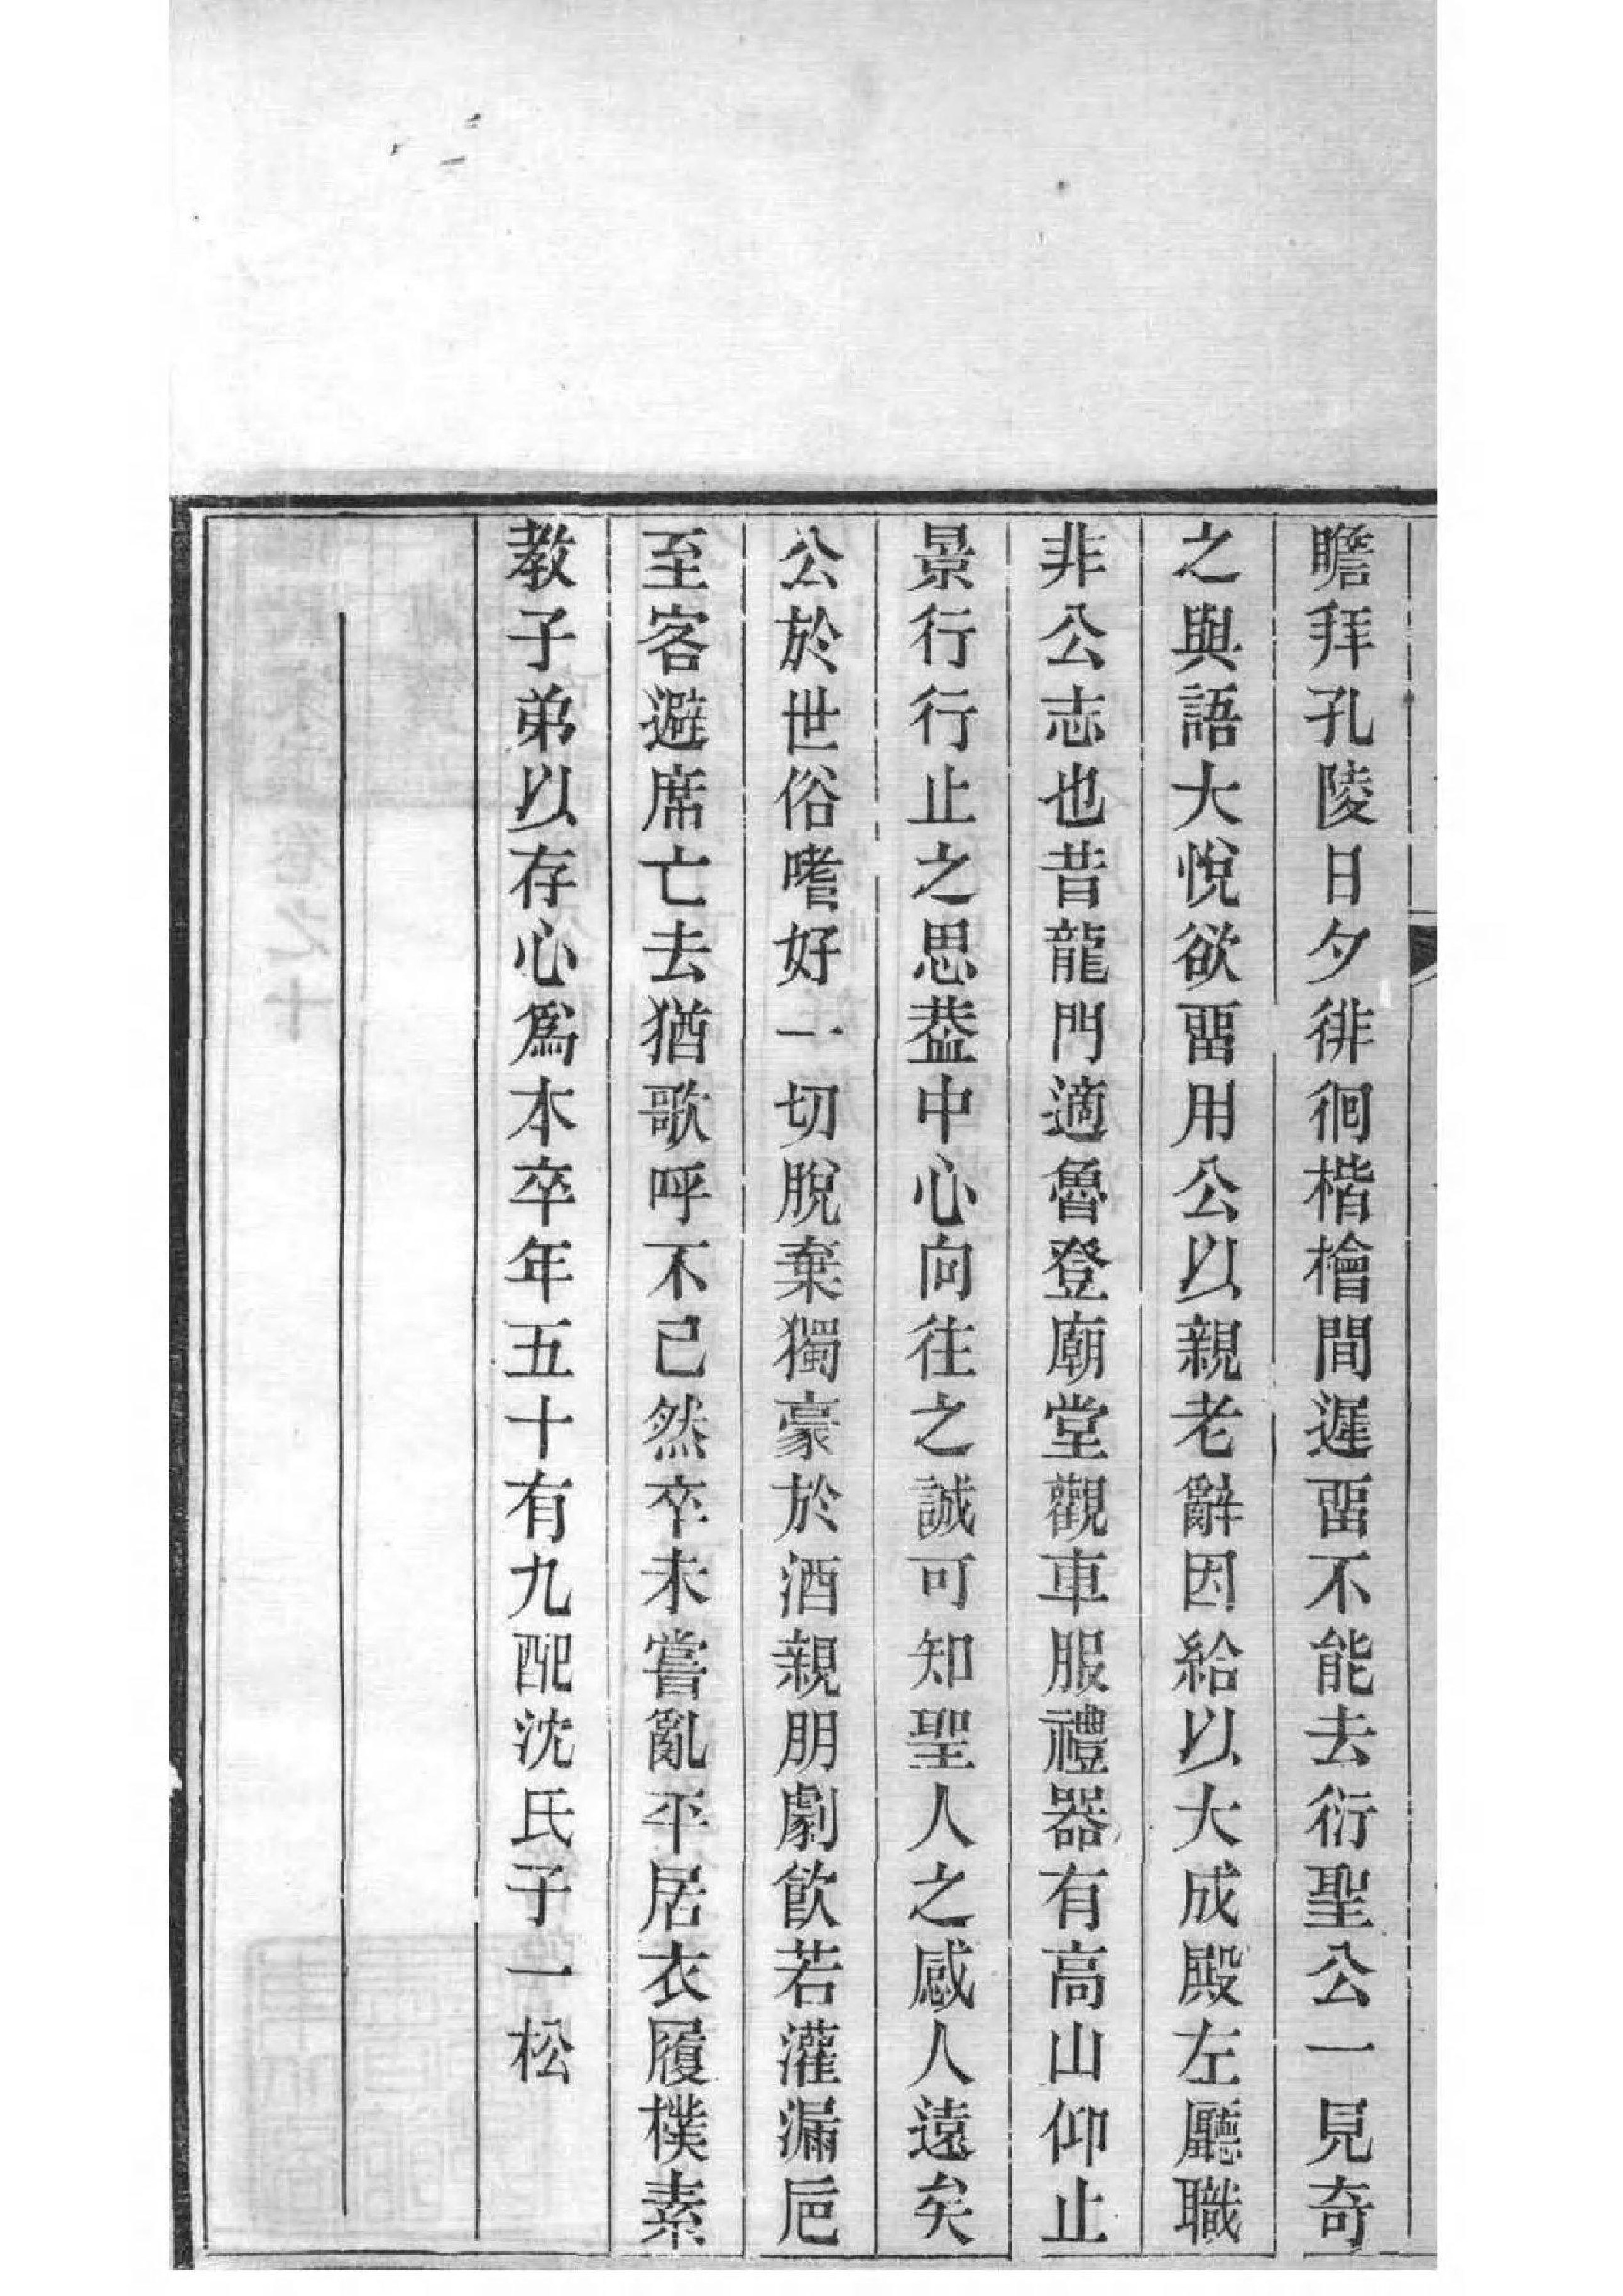 瞻拜孔陵日夕徘徊楷檜間遲畱不能去衍聖公一見奇
之與語大悅欲畱用公以親老辭因給以大成殿左廳職
非公志也昔龍門適魯登廟堂觀車服禮器有高山仰止
景行行止之思葢中心向往之誠可知聖人之感人遠矣
公於世俗嗜好一切脫棄獨豪於酒親朋劇飲若灌漏巵
至客避席亡去猶歌呼不已然卒未嘗亂平居衣履樸素
教子弟以存心爲本卒年五十有九配沈氏子一松